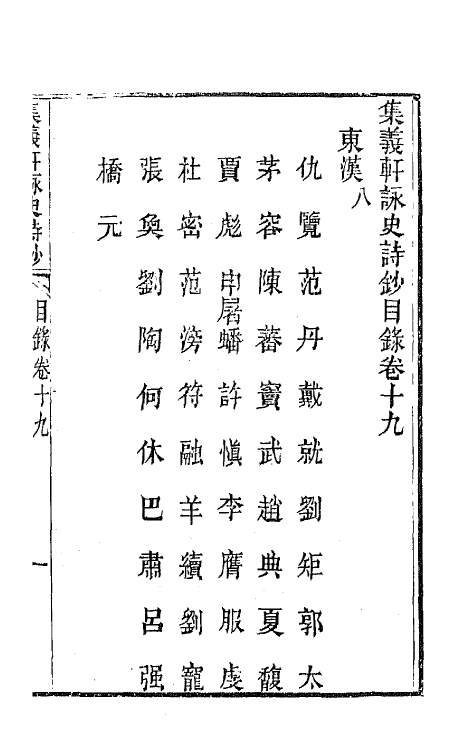 集義軒詠史詩鈔目錄卷十九
東漢八
仇覽范丹戴就劉矩郭太
茅容陳蕃竇武趙典夏馥
賈彪申屠蟠許慎李膺服虔
杜密范滂符融羊續劉寵
張奐劉陶何休巴肅呂强
橋元
集義軒詠史詩鈔 目錄卷十九 一